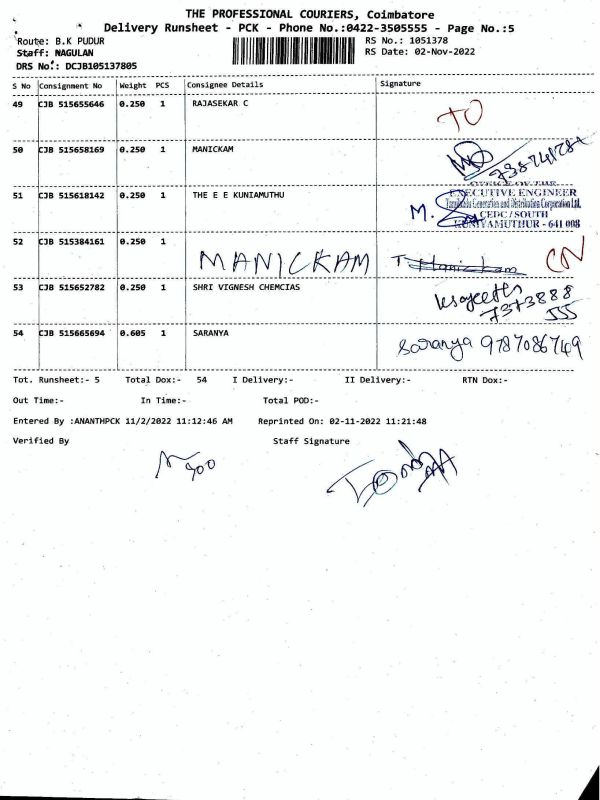 THE PROFESSIONAL COURIERS, Coimbatore
Delivery Runsheet - PCK - Phone No.:0422-3505555 - Page No.:5
Route: B.K PUDUR RS No.: 1051378
Staff: NAGULAN RS Date: 02-Nov-2022
DRS No.: DCJB105137805
S No Consignment No Weight PCS Consignee Details Signature
49 CJB 515655646 0.250 1 RAJASEKAR C
TO
50 CJB 515658169 0.250 1 MANICKAM
51 CJB 515618142 0.250 1 THE E E KUNIAMUTHU
OFFICE OF THE
EXECUTIVE ENGINEER
Tamilnadu Generation and Distribution Corporation Ltd.
M. CEDC/SOUTH
KUNIYAMUTHUR - 641 008
52 CJB 515384161 0.250 1
MANICKAM T. Manickam CN
53 CJB 515652782 0.250 1 SHRI VIGNESH CHEMCIAS
7373888
555
54 CJB 515665694 0.605 1 SARANYA
Saranya 9787086749
Tot. Runsheet:- 5 Total Dox:- 54 I Delivery:- II Delivery:- RTN Dox:-
Out Time:- In Time:- Total POD:-
Entered By :ANANTHPCK 11/2/2022 11:12:46 AM Reprinted On: 02-11-2022 11:21:48
Verified By Staff Signature